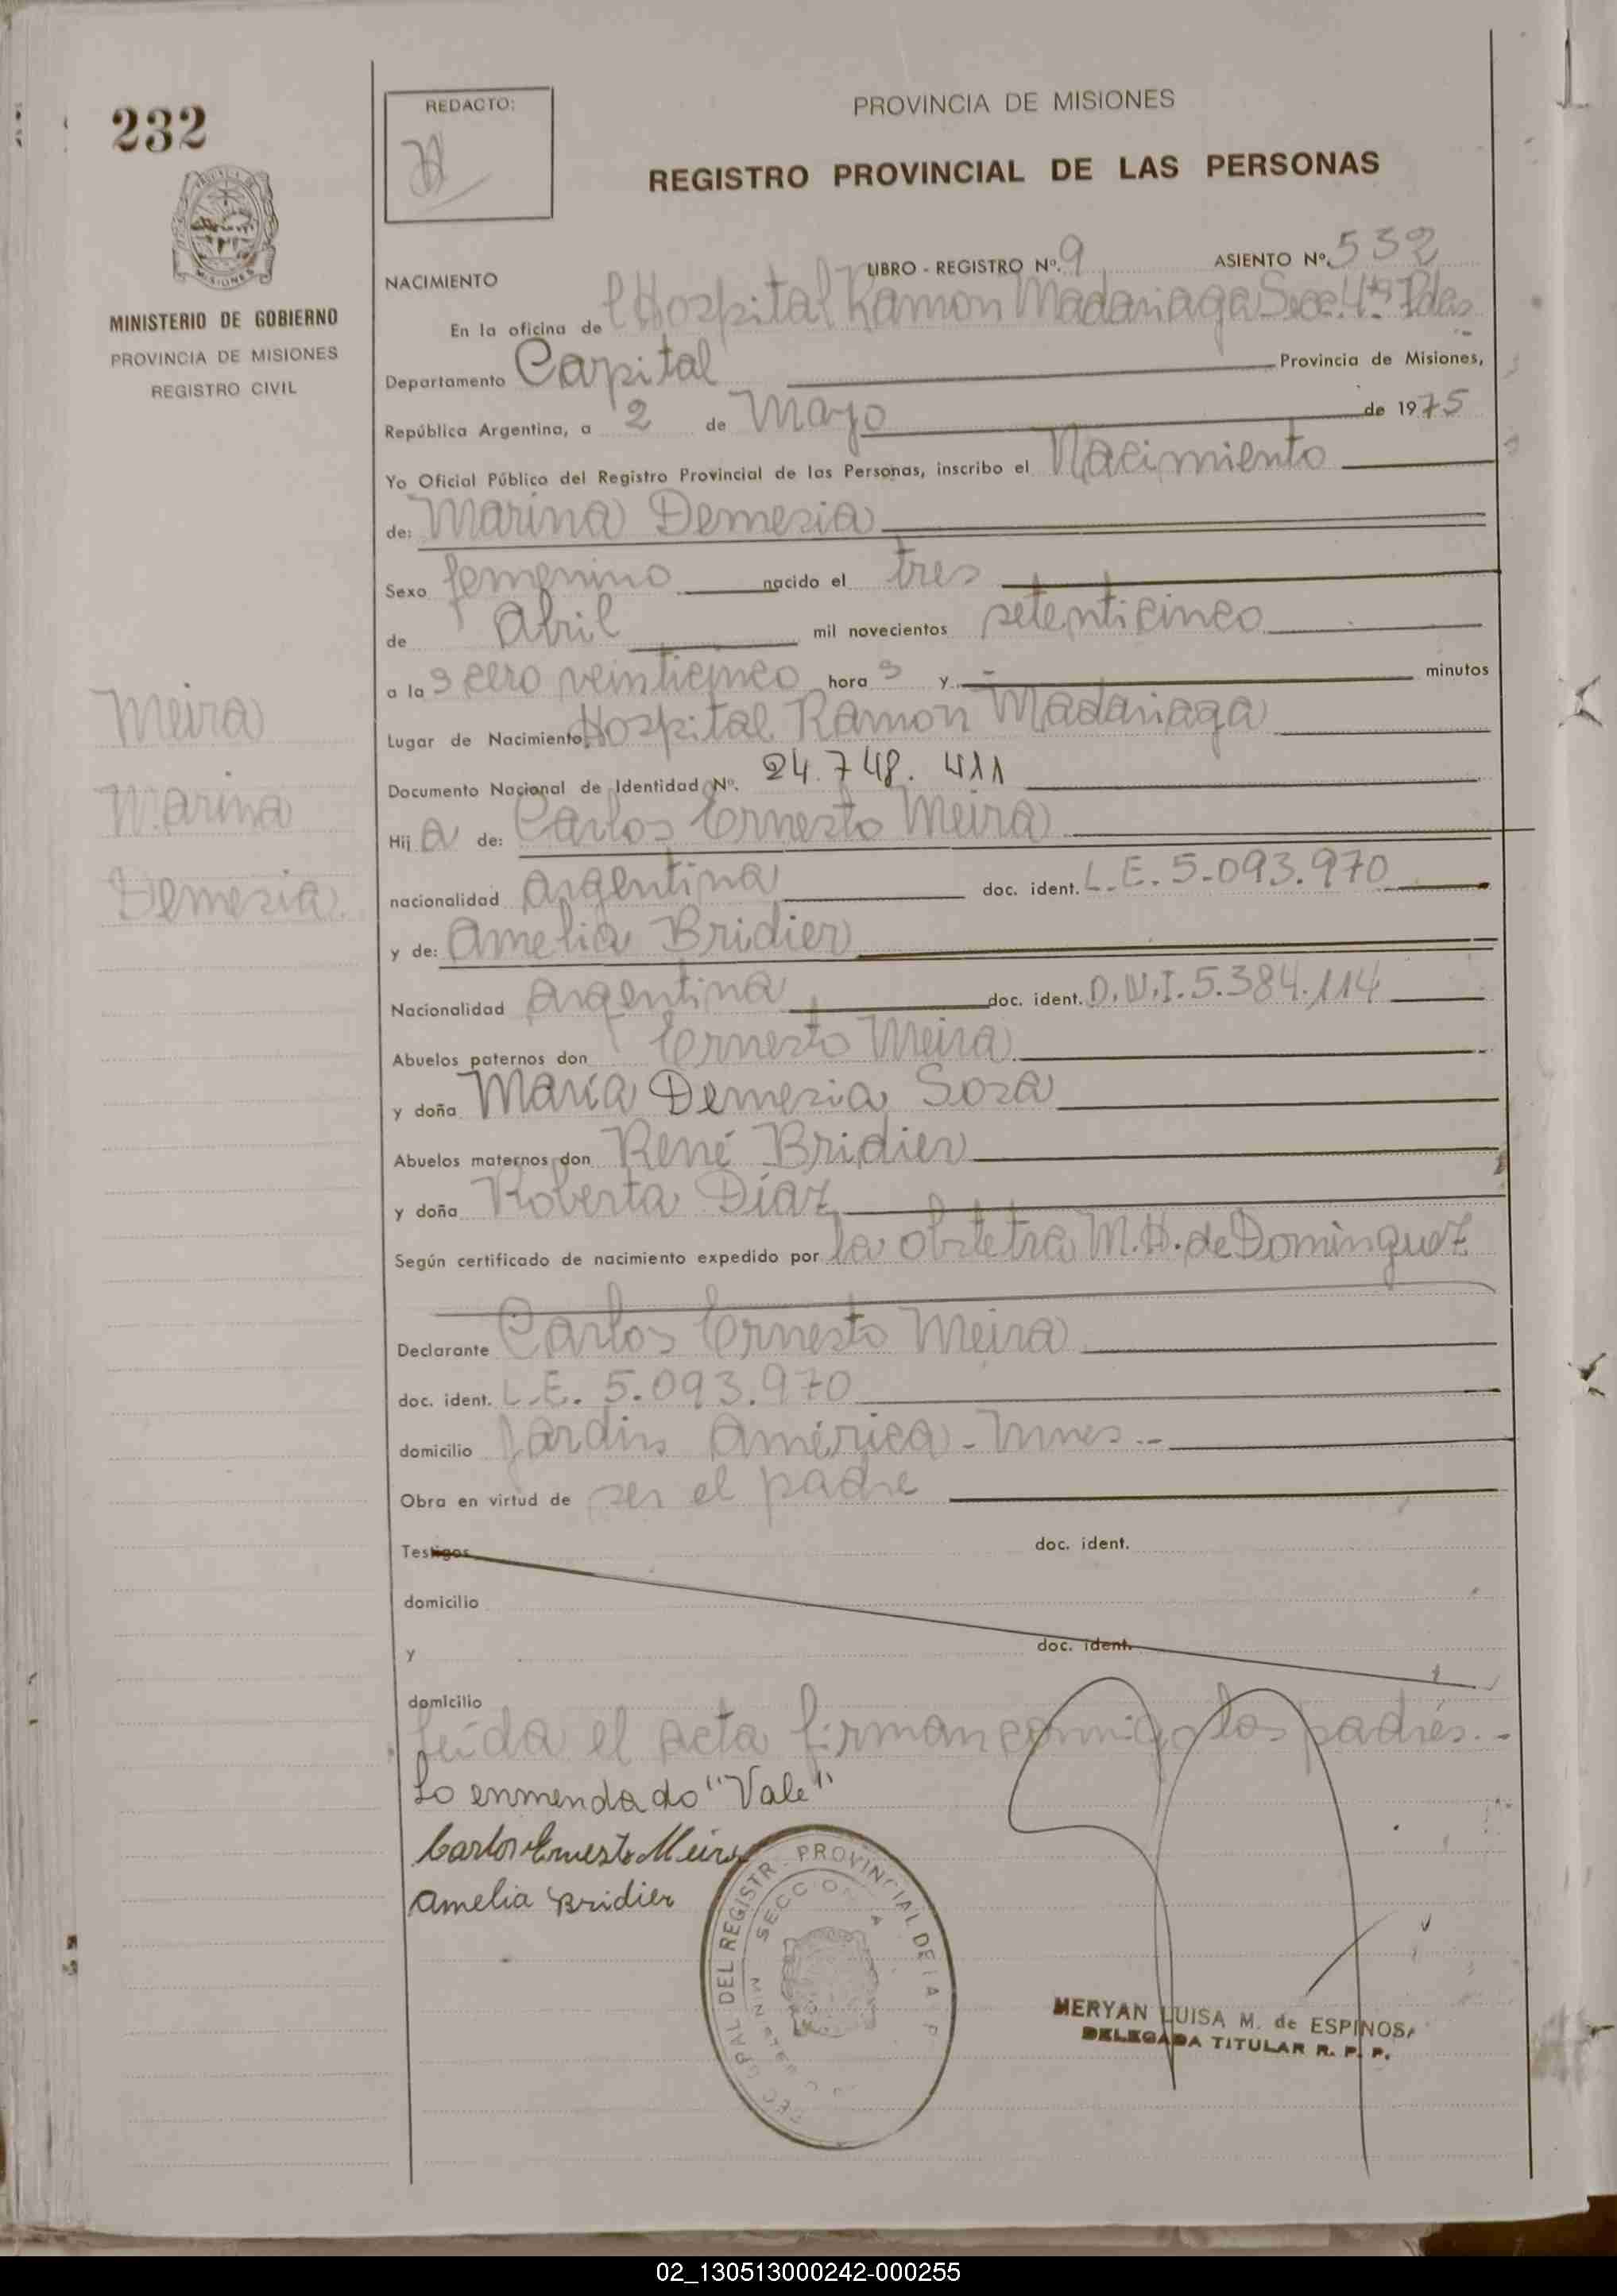 232
REDACTO:
PROVINCIA DE MISIONES
REGISTRO PROVINCIAL DE LAS PERSONAS
MISIONES
MINISTERIO DE GOBIERNO
PROVINCIA DE MISIONES
REGISTRO CIVIL
NACIMIENTO LIBRO - REGISTRO Nº. 9 ASIENTO Nº. 532
En la oficina de l Hospital Ramon Madariaga Secc. 4ta Pdas
Departamento Capital Provincia de Misiones,
República Argentina, a 2 de Mayo de 1975
Yo Oficial Público del Registro Provincial de las Personas, inscribo el Nacimiento
de: Marina Demesia
Sexo femenino nacido el tres
de Abril mil novecientos setenticinco
a la s cero veinticinco hora s y - minutos
Lugar de Nacimiento Hospital Ramon Madariaga
Documento Nacional de Identidad Nº. 24.748.411
Hij a de: Carlos Ernesto Meira
nacionalidad argentina doc. ident. L.E. 5.093.970
y de: Amelia Bridier
Nacionalidad argentina doc. ident. D.N.I. 5.384.114
Abuelos paternos don Ernesto Meira
y doña María Demesia Sosa
Abuelos maternos don René Bridier
y doña Roberta Díaz
Según certificado de nacimiento expedido por la obstetra M.H. de Dominguez
Declarante Carlos Ernesto Meira
doc. ident. L.E. 5.093.970
domicilio Jardin América - Mnes.-
Obra en virtud de ser el padre
Testigos doc. ident.
domicilio
y doc. ident.
domicilio
Leída el acta firman conmigo los padres.-
Lo enmendado "Vale"
Carlos Ernesto Meira
Amelia Bridier
Meira
Marina
Demesia
DEL REGISTR PROVINCIAL DE LA P
MERYAN LUISA M. de ESPINOSA
DELEGADA TITULAR R. P. P.
02_130513000242-000255